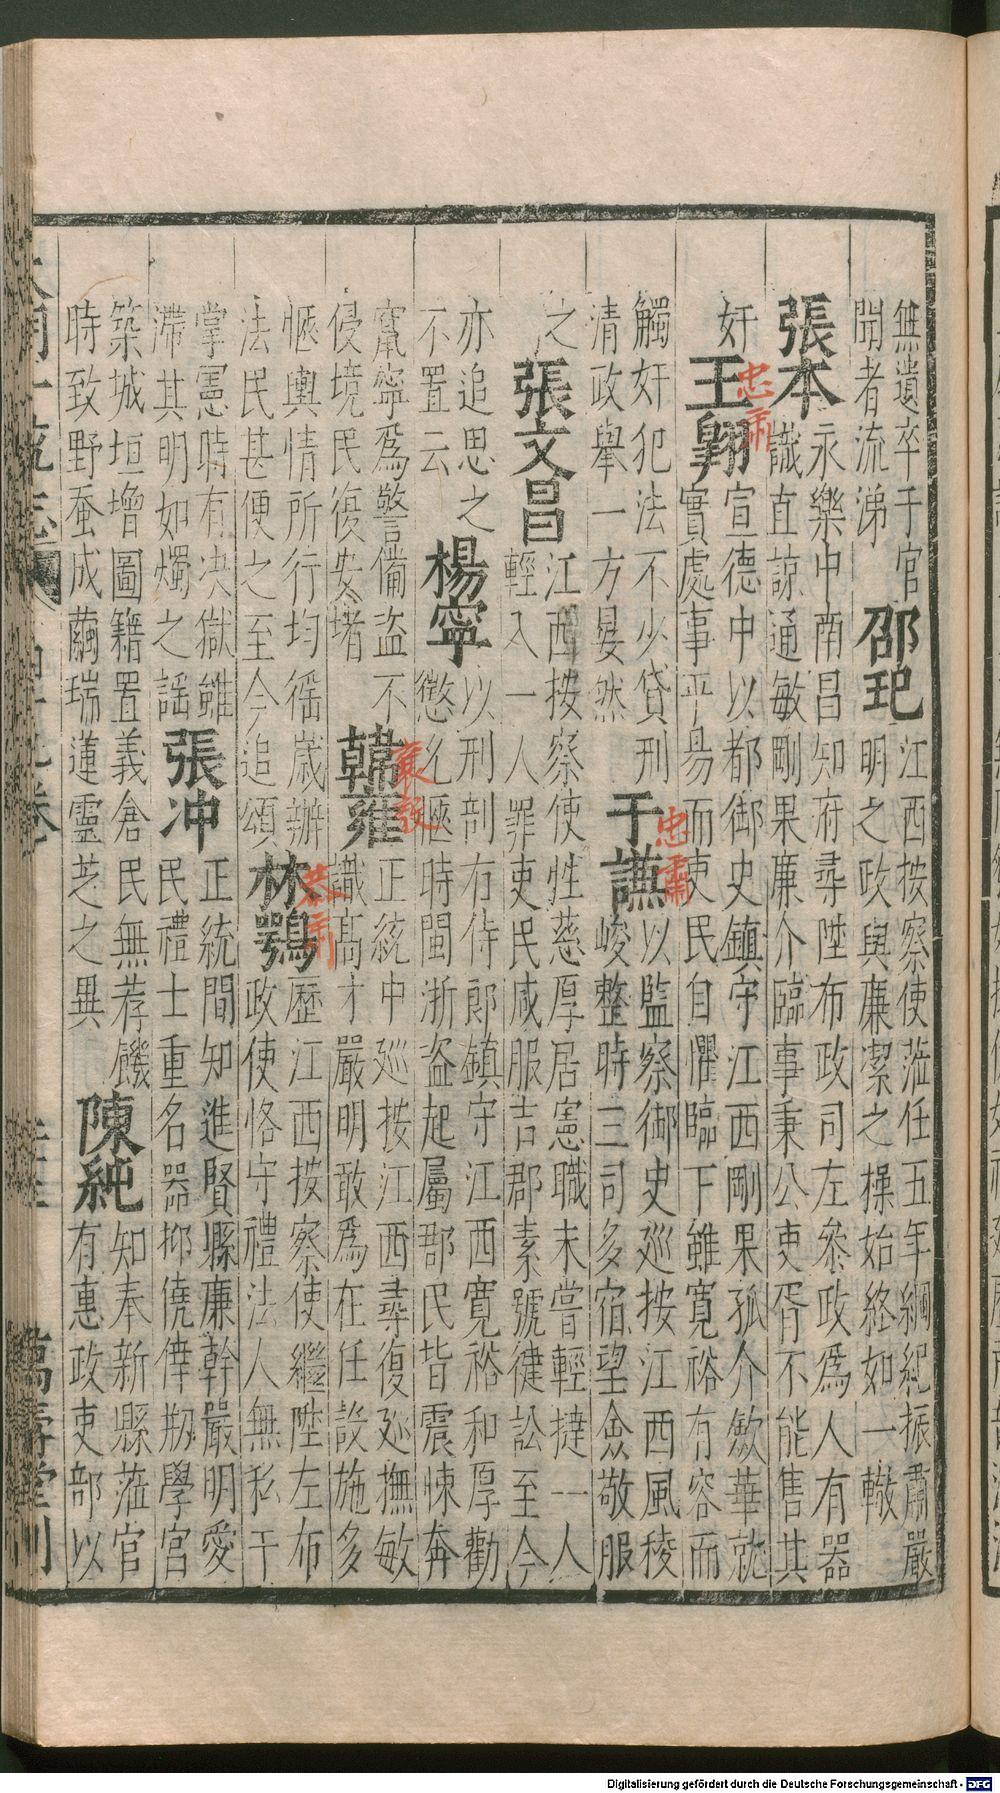 無遺卒于官
聞者流涕
邵玘
江西按察使蒞任五年綱紀振肅嚴
明之政與廉潔之操始終如一轍
張本
永樂中南昌知府尋陞布政司左叅政爲人有器
識直諒通敏剛果廉介臨事秉公吏胥不能售其
奸
王翱
忠肅
宣德中以都御史鎮守江西剛果孤介斂華就
實處事平易而吏民自懼臨下雖寬裕有容而
觸奸犯法不少貸刑
清政舉一方晏然
于謙
忠肅
以監察御史廵按江西風稜
峻整時三司多宿望僉敬服
之
張文昌
江西按察使性慈厚居憲職未嘗輕撻一人
輕入一人罪吏民咸服吉郡素號健訟至今
亦追思之
不置云
楊寧
以刑部右侍郎鎮守江西寬裕和厚勸
懲允愜時閩浙盜起屬郡民皆震悚奔
竄寧爲警備盜不
侵境民復安堵
韓雍
襄毅
正統中廵按江西尋復廵撫敏
識高才嚴明敢爲在任設施多
愜輿情所行均徭歲辦
法民甚便之至今追頌
林鶚
恭肅
歷江西按察使繼陞左布
政使恪守禮法人無私干
掌憲時有决獄雖
滯其明如燭之謠
張冲
正統間知進賢縣廉幹嚴明愛
民禮士重名器抑僥倖剏學宮
築城垣增圖籍置義倉民無荐饑
時致野蚕成繭瑞蓮靈芝之異
陳純
知奉新縣蒞官
有惠政吏部以
大明一統志
萬壽堂刊
Digitalisierung gefördert durch die Deutsche Forschungsgemeinschaft - DFG